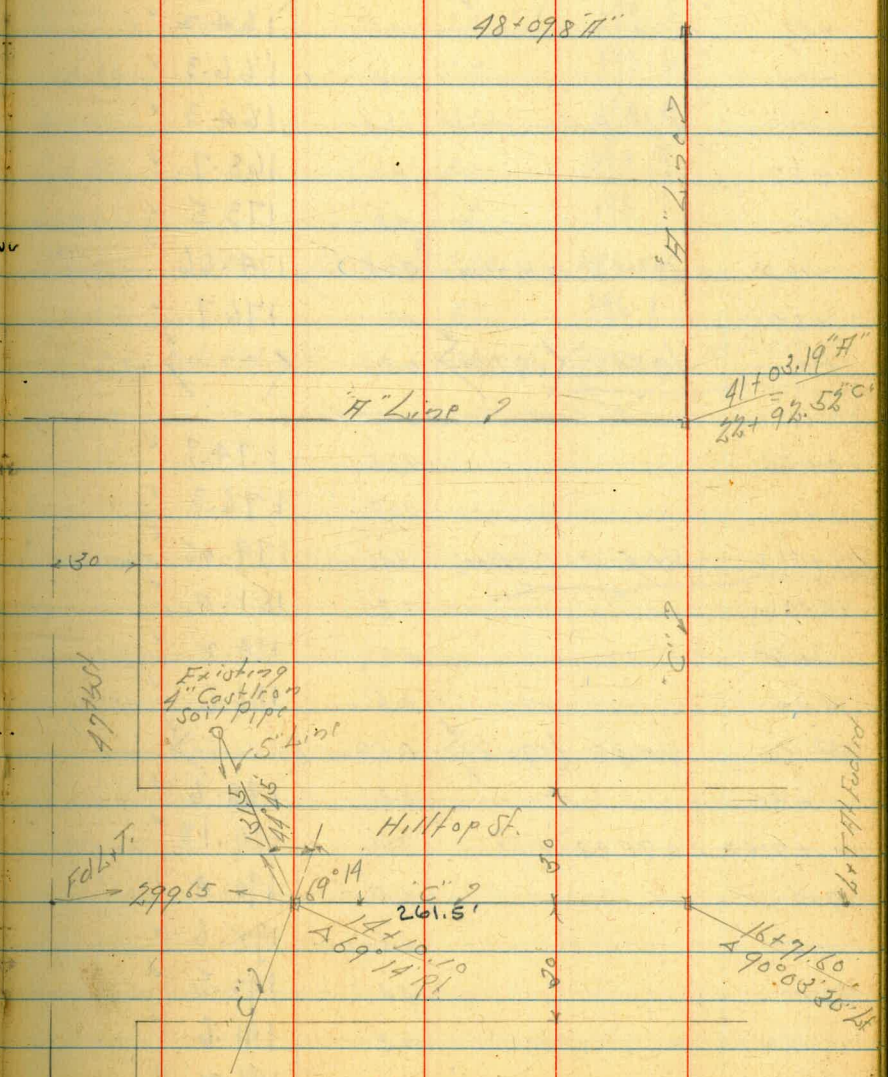 48+09.8 "A"
"A" Line
41+03.19 "A" =
22+92.52 "C"
"A" Line
30
"C"
47th St
Existing
4" Cast Iron
Soil Pipe
"S" Line
151.5
44°45'
Hilltop St.
30
Fd L+T.
299.65
69°14
"C"
261.5'
14+10.10
Δ 69°14' Rt
30
"C"
16+71.60
Δ 90°03'30" Lt
L+T At Euclid